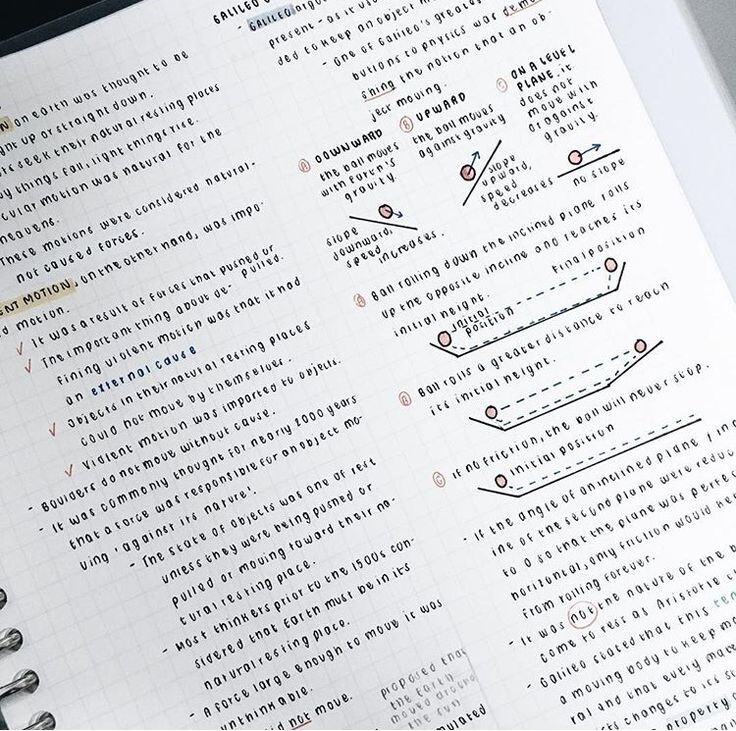 on earth was thought to be
up or straight down.
seek their natural resting places
things fall, light things rise.
motion was natural for the
heavens.
These motions were considered natural-
not caused forces.
MOTION, on the other hand, was impo-
motion.
It was a result of forces that pushed or
pulled.
The important thing about de-
fining violent motion was that it had
an external cause
Objects in their natural resting places
could not move by themselves.
Violent motion was imparted to objects.
- Boulders do not move without cause.
- It was commonly thought for nearly 2000 years
that a force was responsible for an object mo-
ving 'against its nature'.
- The state of objects was one of rest
unless they were being pushed or
pulled or moving toward their na-
tural resting place.
- Most thinkers prior to the 1500s con-
sidered that Earth must be in its
natural resting place.
- A force large enough to move it was
unthinkable.
not move.
proposed that
the Earth
moved around
the sun
GALILEO
- GALILEO
present - as it
ded to keep an object
- One of Galileo's greatest
butions to physics was
shing the notion that an ob-
ject moving.
A DOWNWARD
the ball moves
with Earth's
gravity.
slope
downward,
speed
increases.
B UPWARD
the ball moves
against gravity
slope
upward,
speed
decreases
C ON A LEVEL
PLANE, it
does not
move with
or against
gravity.
no slope
A Ball rolling down the inclined plane rolls
up the opposite incline and reaches its
initial height.
Final position
initial
position
B Ball rolls a greater distance to reach
its initial height.
C If no friction, the ball will never stop.
Initial position
- If the angle of an inclined plane
ine of the second plane were
to 0 so that the plane was
horizontal, only friction would
from rolling forever.
- It was not the nature of the
come to rest as Aristotle
- Galileo stated that this
a moving body to keep
ral and that every
changes to its
property